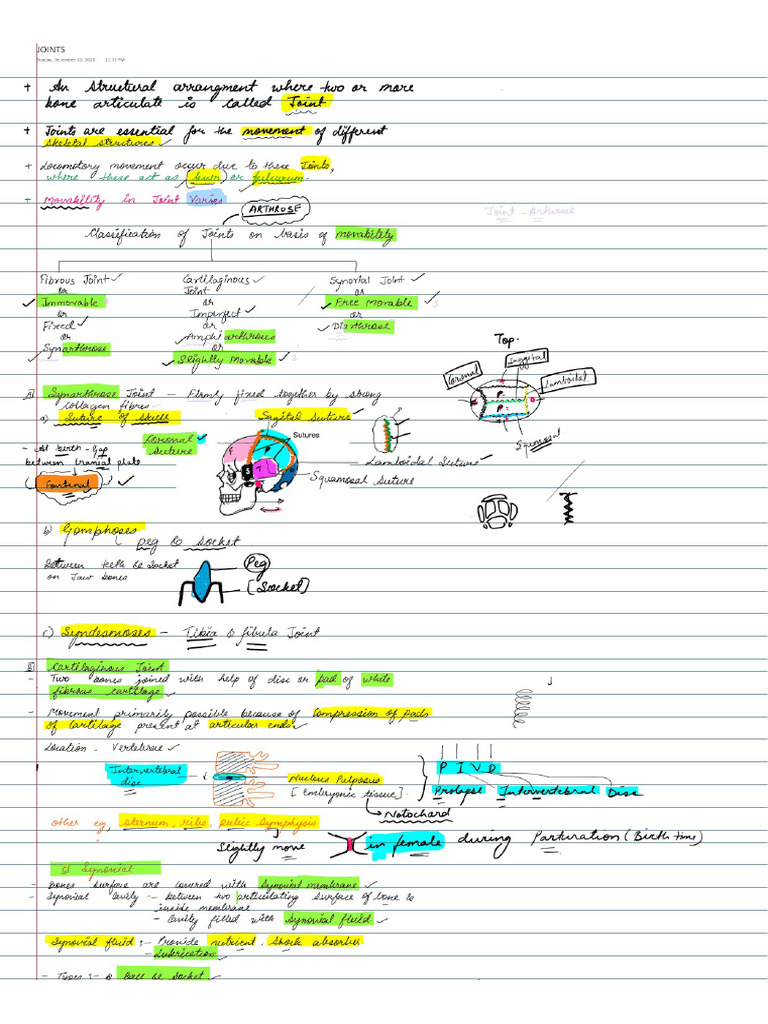 JOINTS
Sunday, December 10, 2023 11:33 PM
+ An structural arrangment where two or more
bone articulate is called Joint
+ Joints are essential for the movement of different
skeletal structures
+ Locomotory movement occur due to these Joints,
where these act as lever or fulcurum.
+ Movability in Joint Varies
ARTHROSE
Joint - Arthrose
Classification of Joints on basis of movability
Fibrous Joint
or
Immovable
or
Fixed
or
Synarthrose
Cartilaginous
Joint
or
Imperfect
or
Amphiarthrous
or
Slightly Movable
Synovial Joint
or
Free Movable
or
Diarthrose
Top.
Coronal
Saggital
Lambodal
P
P
Squamosal
A) Synarthrose Joint - Firmly fixed together by strong
collagen fibres
a) Suture of Skull
Sagital Suture
Coronal
Suture
Sutures
F
P
S
T
O
Lamboidal Suture
Squamosal Suture
- At birth - Gap
between cranial plate
(Fontenal)
b) Gomphoses
peg & socket
Between teeth & socket
on Jaw bones
Peg
[Socket]
c) Syndesmoses - Tibia & fibula Joint
B) Cartilaginous Joint
- Two bones joined with help of disc or pad of white
fibrous cartilage
- Movement primarily possible because of Compression of Pads
of Cartilage present at articular ends
Location - Vertebrae
Intervertebral
disc
Nucleus Pulposus
[Embryonic tissue]
Notochard
P I V D
Prolapse Intervertebral Disc
other eg, sternum, ribs, pubic symphysis
Slightly move
in female during Parturation (Birth time)
Synovial
- Bones surface are covered with Synovial membrane
- Synovial cavity - between two articulating surface of bone &
inside membrane
- Cavity filled with Synovial fluid
Synovial fluid :- Provide nutrient, Shock absorber
- Lubrication
- Types :- Ball & Socket